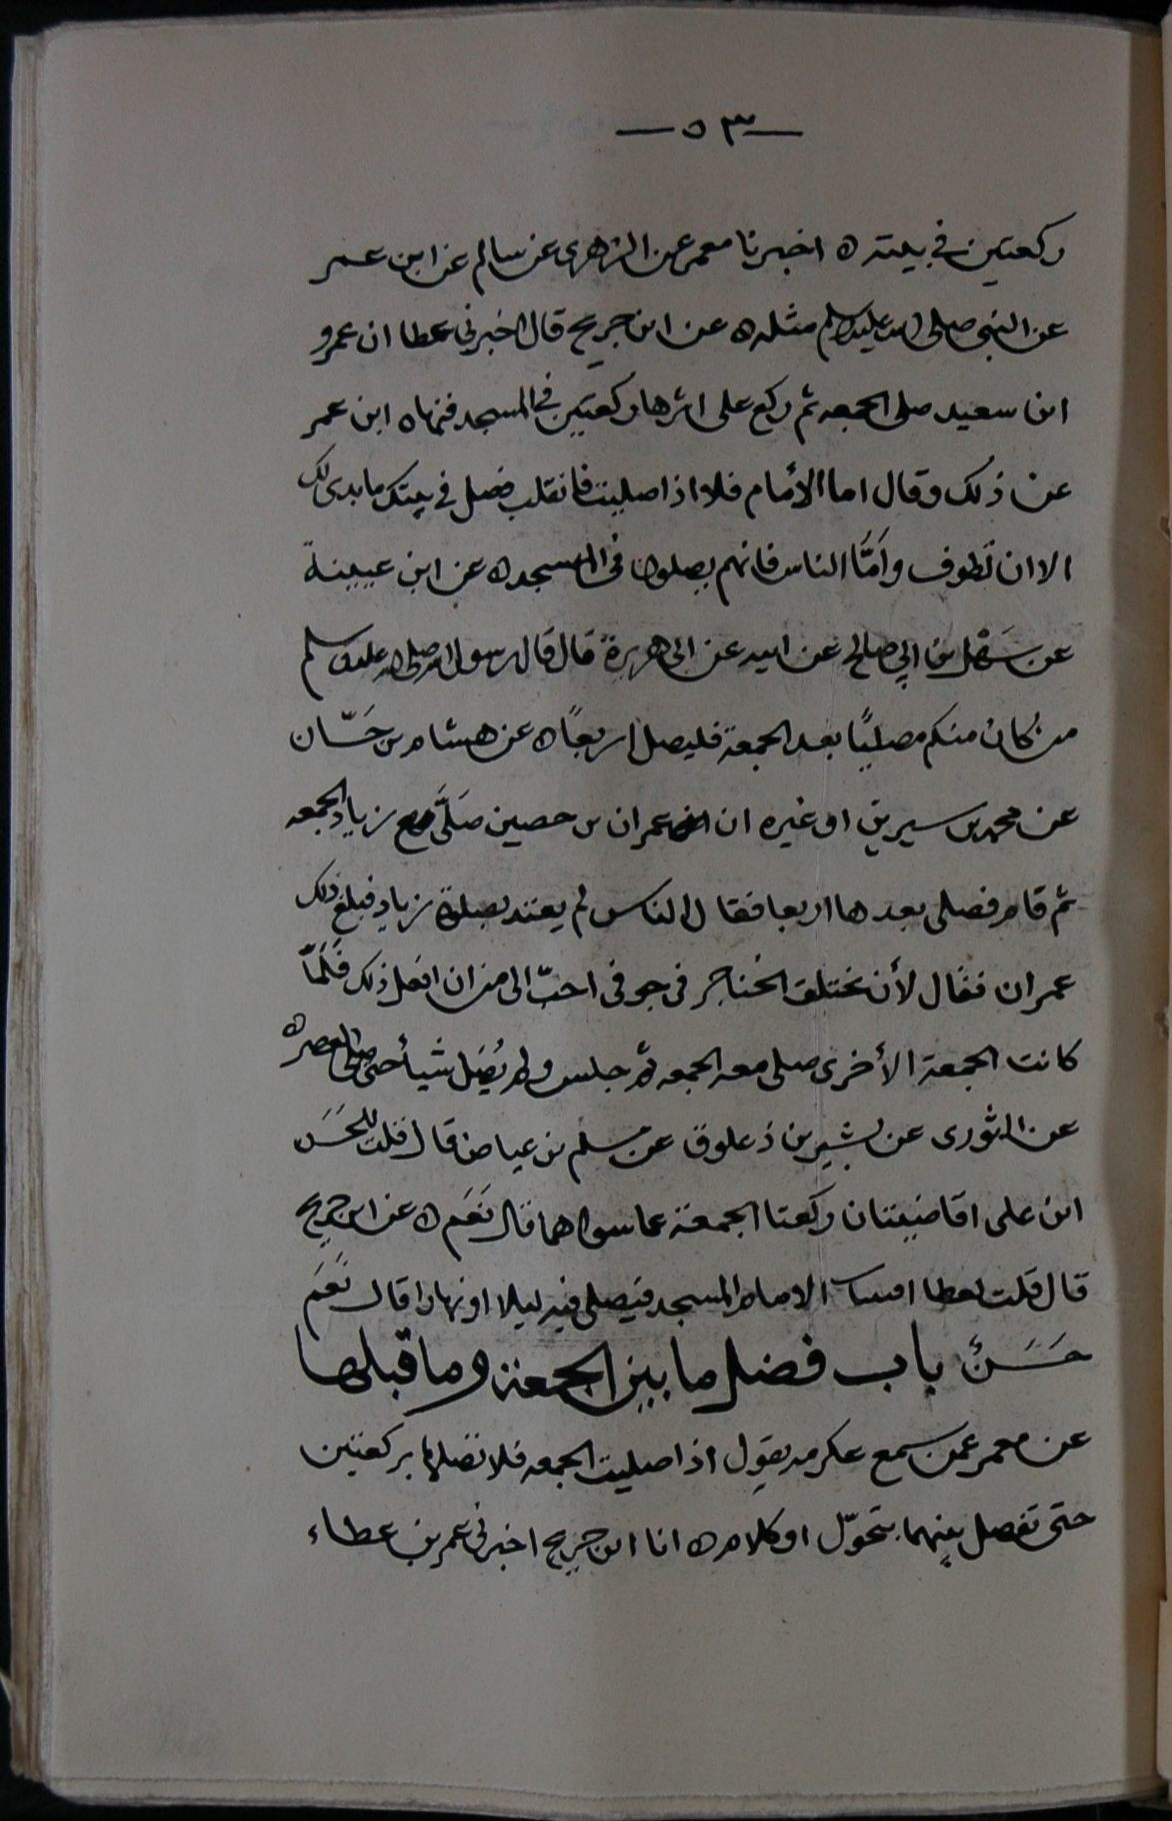 — ٥٣ —
ركعتين في بيته ه اخبرنا معمر عن الزهرى عن سالم عن ابن عمر
عن النبى صلى الله عليه وسلم مثله ه عن ابن جريج قال اخبرني عطا ان عمرو
ابن سعيد صلى الجمعه ثم ركع على اثرها ركعتين في المسجد فنهاه ابن عمر
عن ذلك وقال اما الأمام فلا اذا صليت فانقلب فصل في بيتك ما بدى لك
الا ان تطوف وأمَّا الناس فانهم يصلون فى المسجد ه عن ابن عيينة
عن سَهْل بن ابي صالح عن ابيه عن ابى هريرة قال قال رسول الله صلى الله عليه وسلم
من كان منكم مصليًا بعد الجمعة فليصل اربعًا ه عن هشام بن حَسّان
عن محمد بن سيرين او غيره ان عمران بن حصين صَلَّى مع زياد الجمعه
ثم قام فصلى بعدها اربعا فقال الناس لم يعتد بصلوة زياد فبلغ ذلك
عمران فقال لأن تختلف الخناجر فى جوفى احبّ الى من ان افعل ذلك فَلَمّا
كانت الجمعة الأخرى صلى معه الجمعه ثم جلس ولم يُصَل شيأ حتى صلى العصر ه
عن الثورى عن بشير بن ذعلوق عن مسلم بن عياض قال قلت للحَسَن
ابن على اقاضيتان ركعتا الجمعة عما سواهما قال نَعَم ه عن ابن جريج
قال قلت لعطا الامام المسجد فيصلى فيه ليلا او نهارا قال نَعَم
حَسَنٌ باب فضل ما بين الجمعة وما قبلها
عن معمر عمن سمع عكرمه يقول اذا صليت الجمعه فلا تصلها بركعتين
حتى تفصل بينهما بتحوّل او كلام ه انا ابن جريج اخبرنى عمر بن عطاء